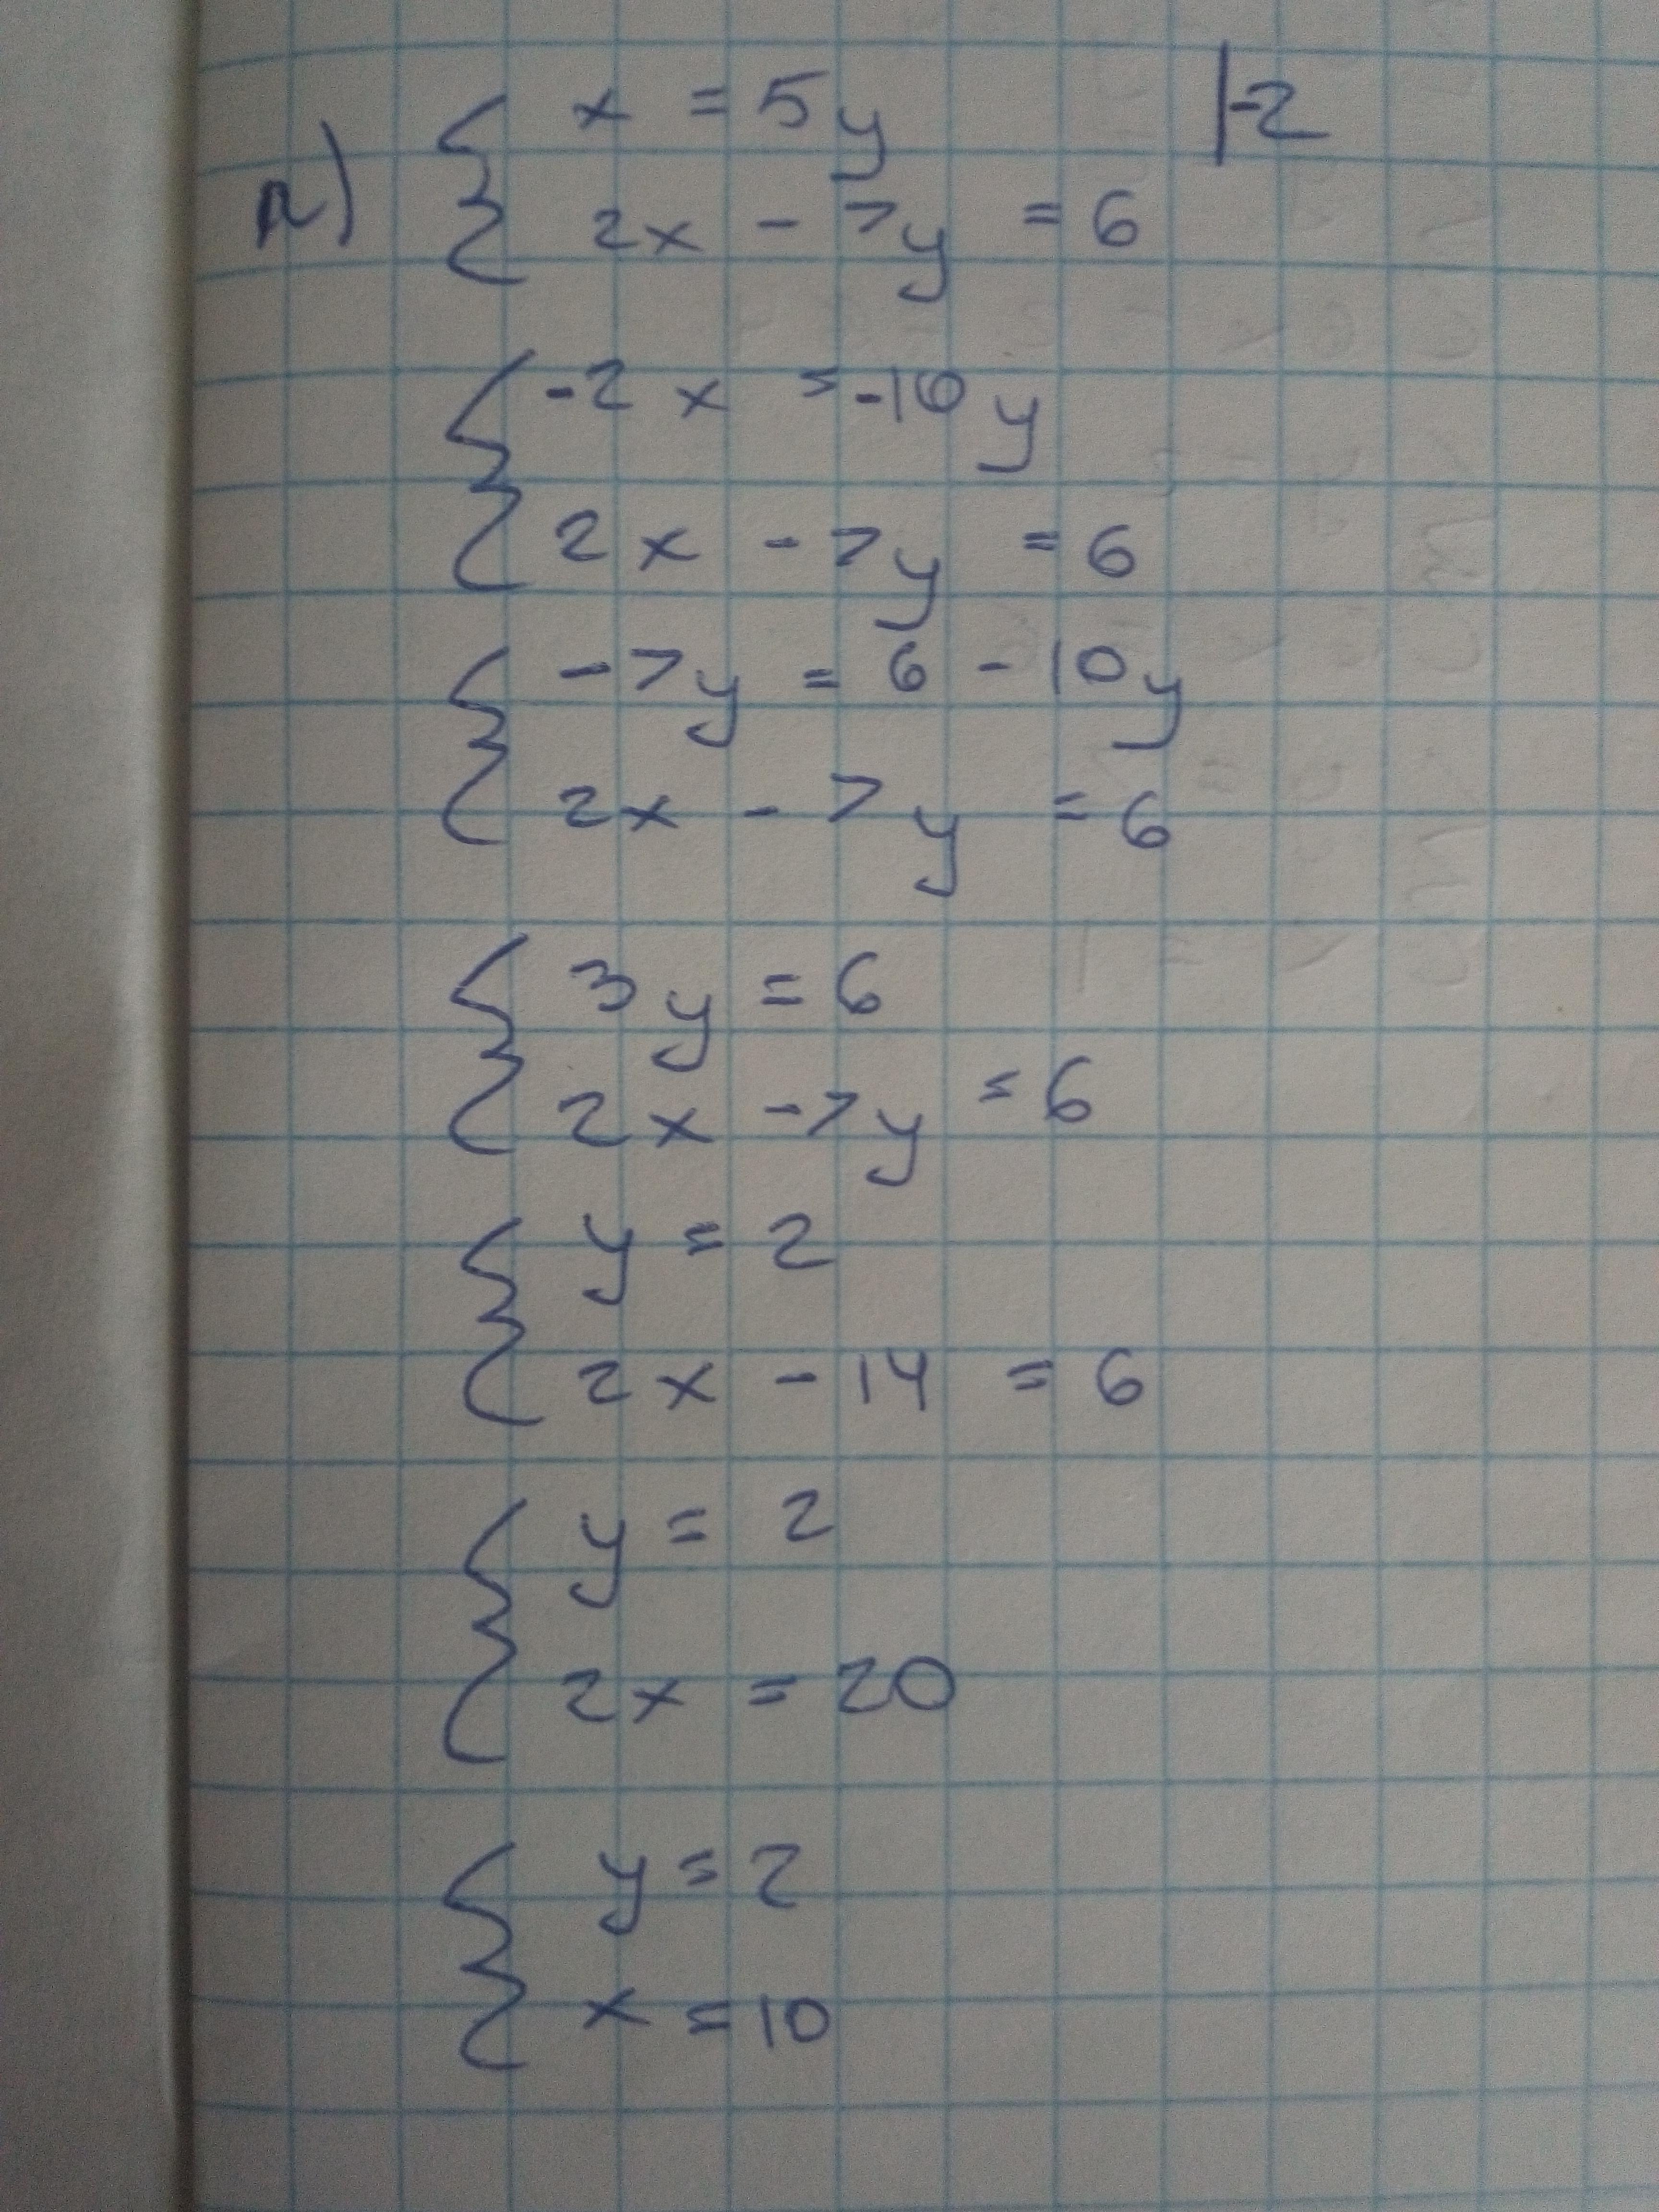 а) { x = 5y |-2
2x - 7y = 6
{ -2x = -10y
2x - 7y = 6
{ -7y = 6 - 10y
2x - 7y = 6
{ 3y = 6
2x - 7y = 6
{ y = 2
2x - 14 = 6
{ y = 2
2x = 20
{ y = 2
x = 10